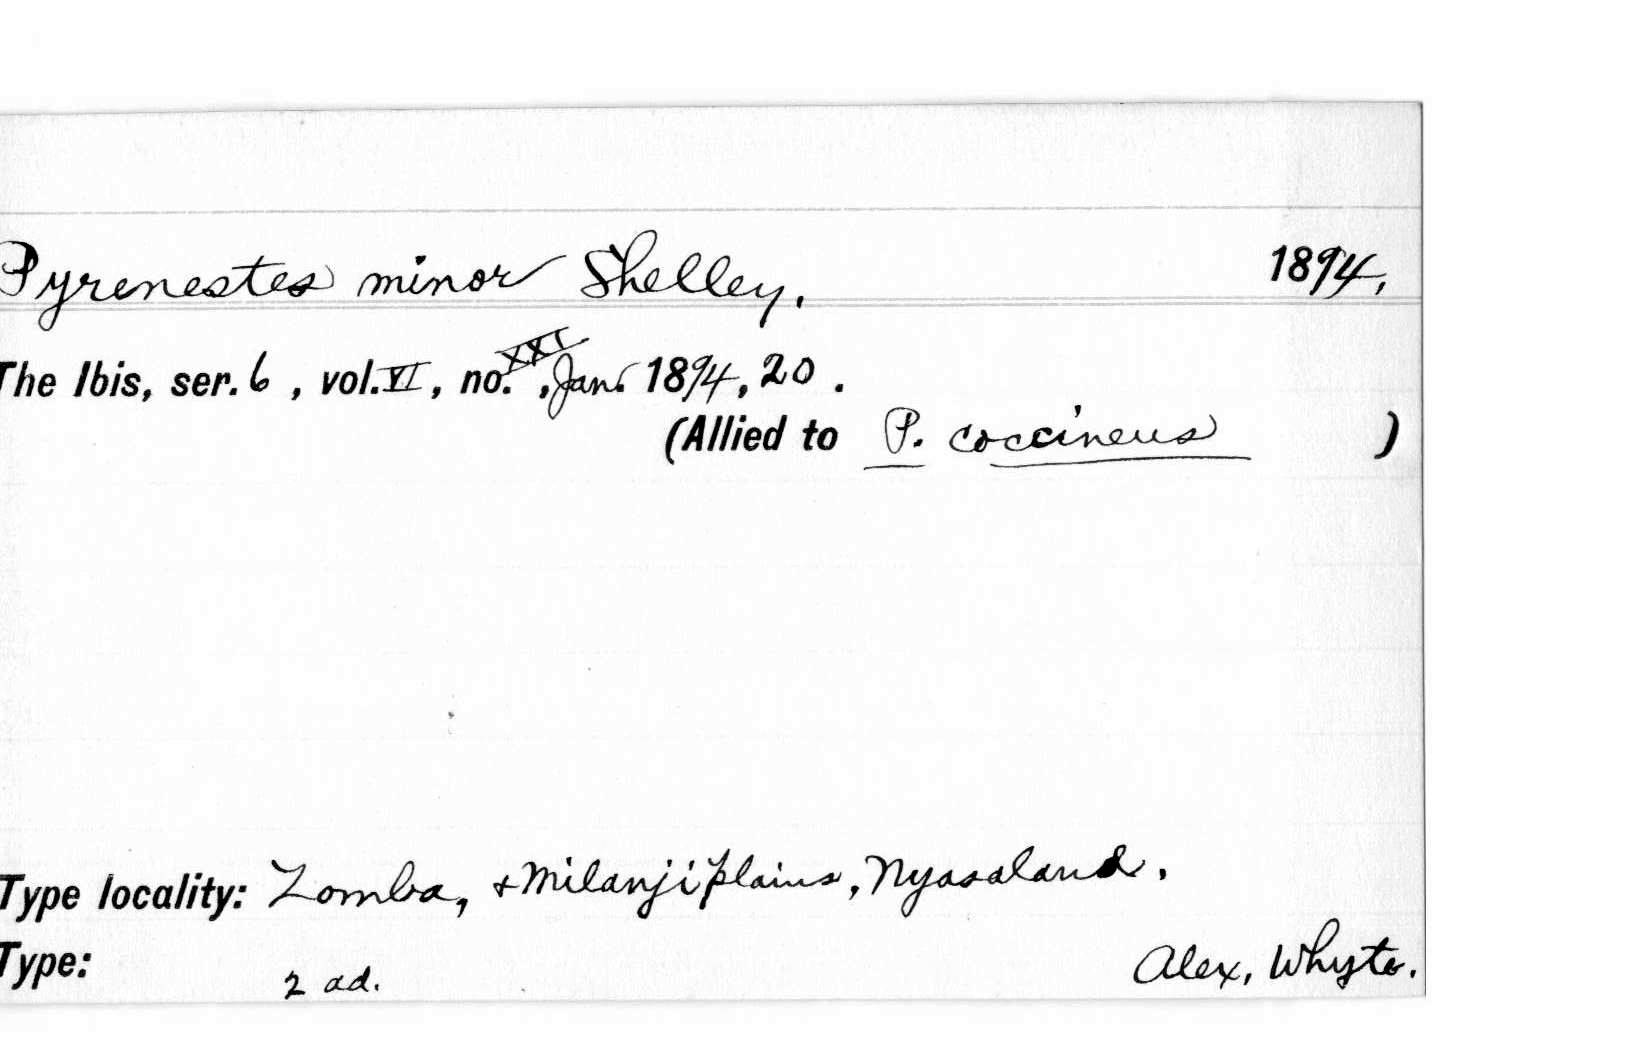 Pyrenestes minor Shelley. 1894,
The Ibis, ser. 6, vol. VI, no. XXI, Jan. 1894, 20.
(Allied to P. coccineus )
Type locality: Zomba, + Milanji plains, Nyasaland.
Type: 2 ad. Alex, Whyte.